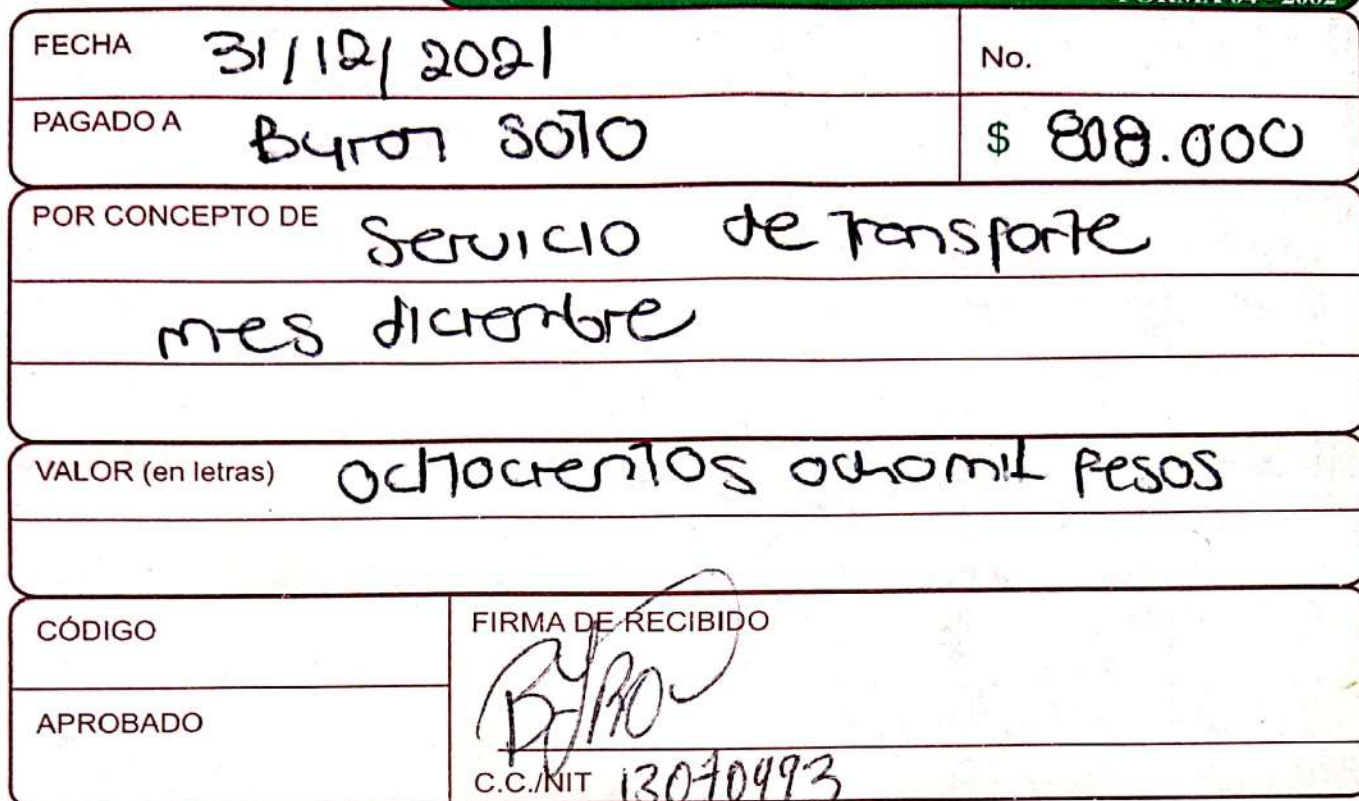 FECHA 31/12/2021 No.
PAGADO A Byron SOTO $ 808.000
POR CONCEPTO DE Servicio de Transporte
mes diciembre
VALOR (en letras) ochocientos ocho mil pesos
CÓDIGO FIRMA DE RECIBIDO
Byron
APROBADO
C.C./NIT 13070493